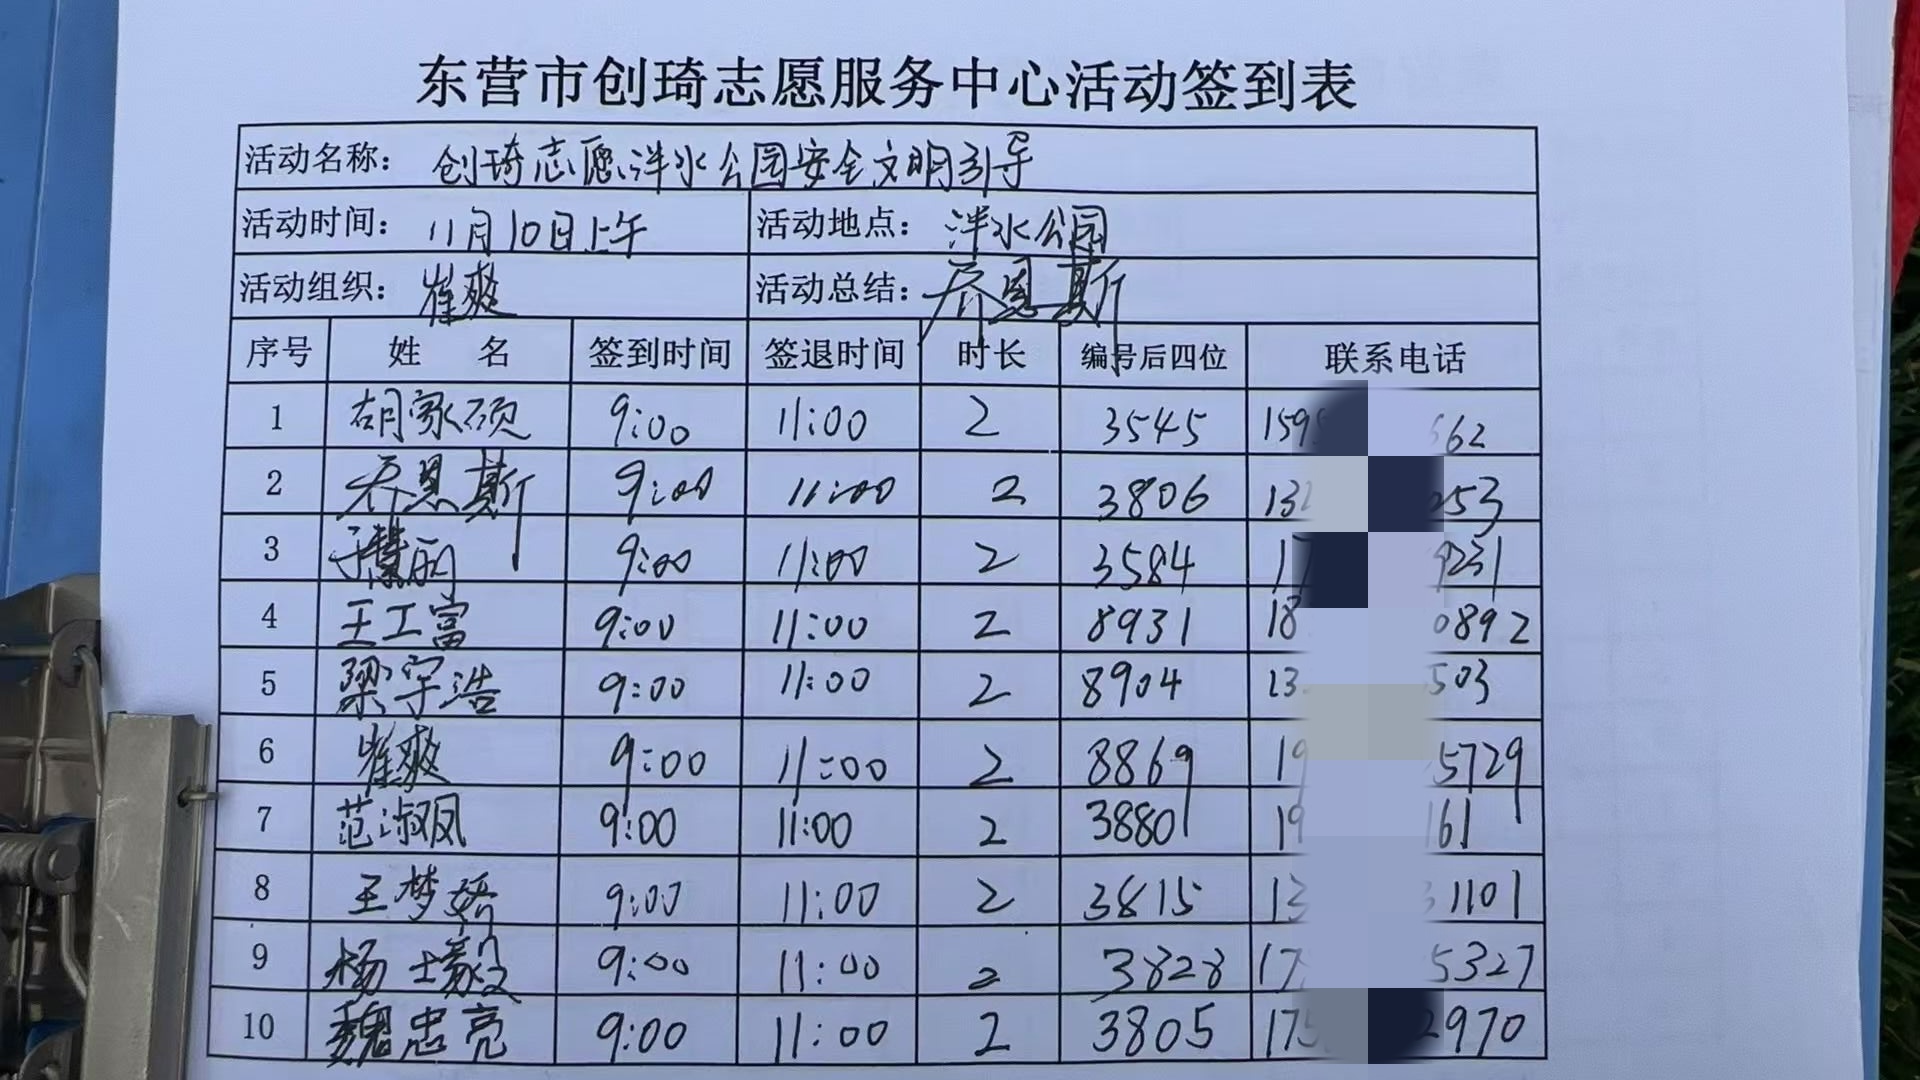 东营市创琦志愿服务中心活动签到表
活动名称： 创琦志愿泮水公园安全文明引导
活动时间： 11月10日上午 活动地点： 泮水公园
活动组织： 崔爽 活动总结： 乔恩斯
序号 姓 名 签到时间 签退时间 时长 编号后四位 联系电话
1 胡家硕 9:00 11:00 2 3545 159 662
2 乔恩斯 9:00 11:00 2 3806 13 053
3 于慧丽 9:00 11:00 2 3584 17 9231
4 王工富 9:00 11:00 2 8931 18 0892
5 梁宇浩 9:00 11:00 2 8904 13 503
6 崔爽 9:00 11:00 2 8869 19 5729
7 范淑凤 9:00 11:00 2 3880 19 161
8 王梦娇 9:00 11:00 2 3815 13 1101
9 杨士毅 9:00 11:00 2 3828 17 5327
10 魏忠亮 9:00 11:00 2 3805 175 2970